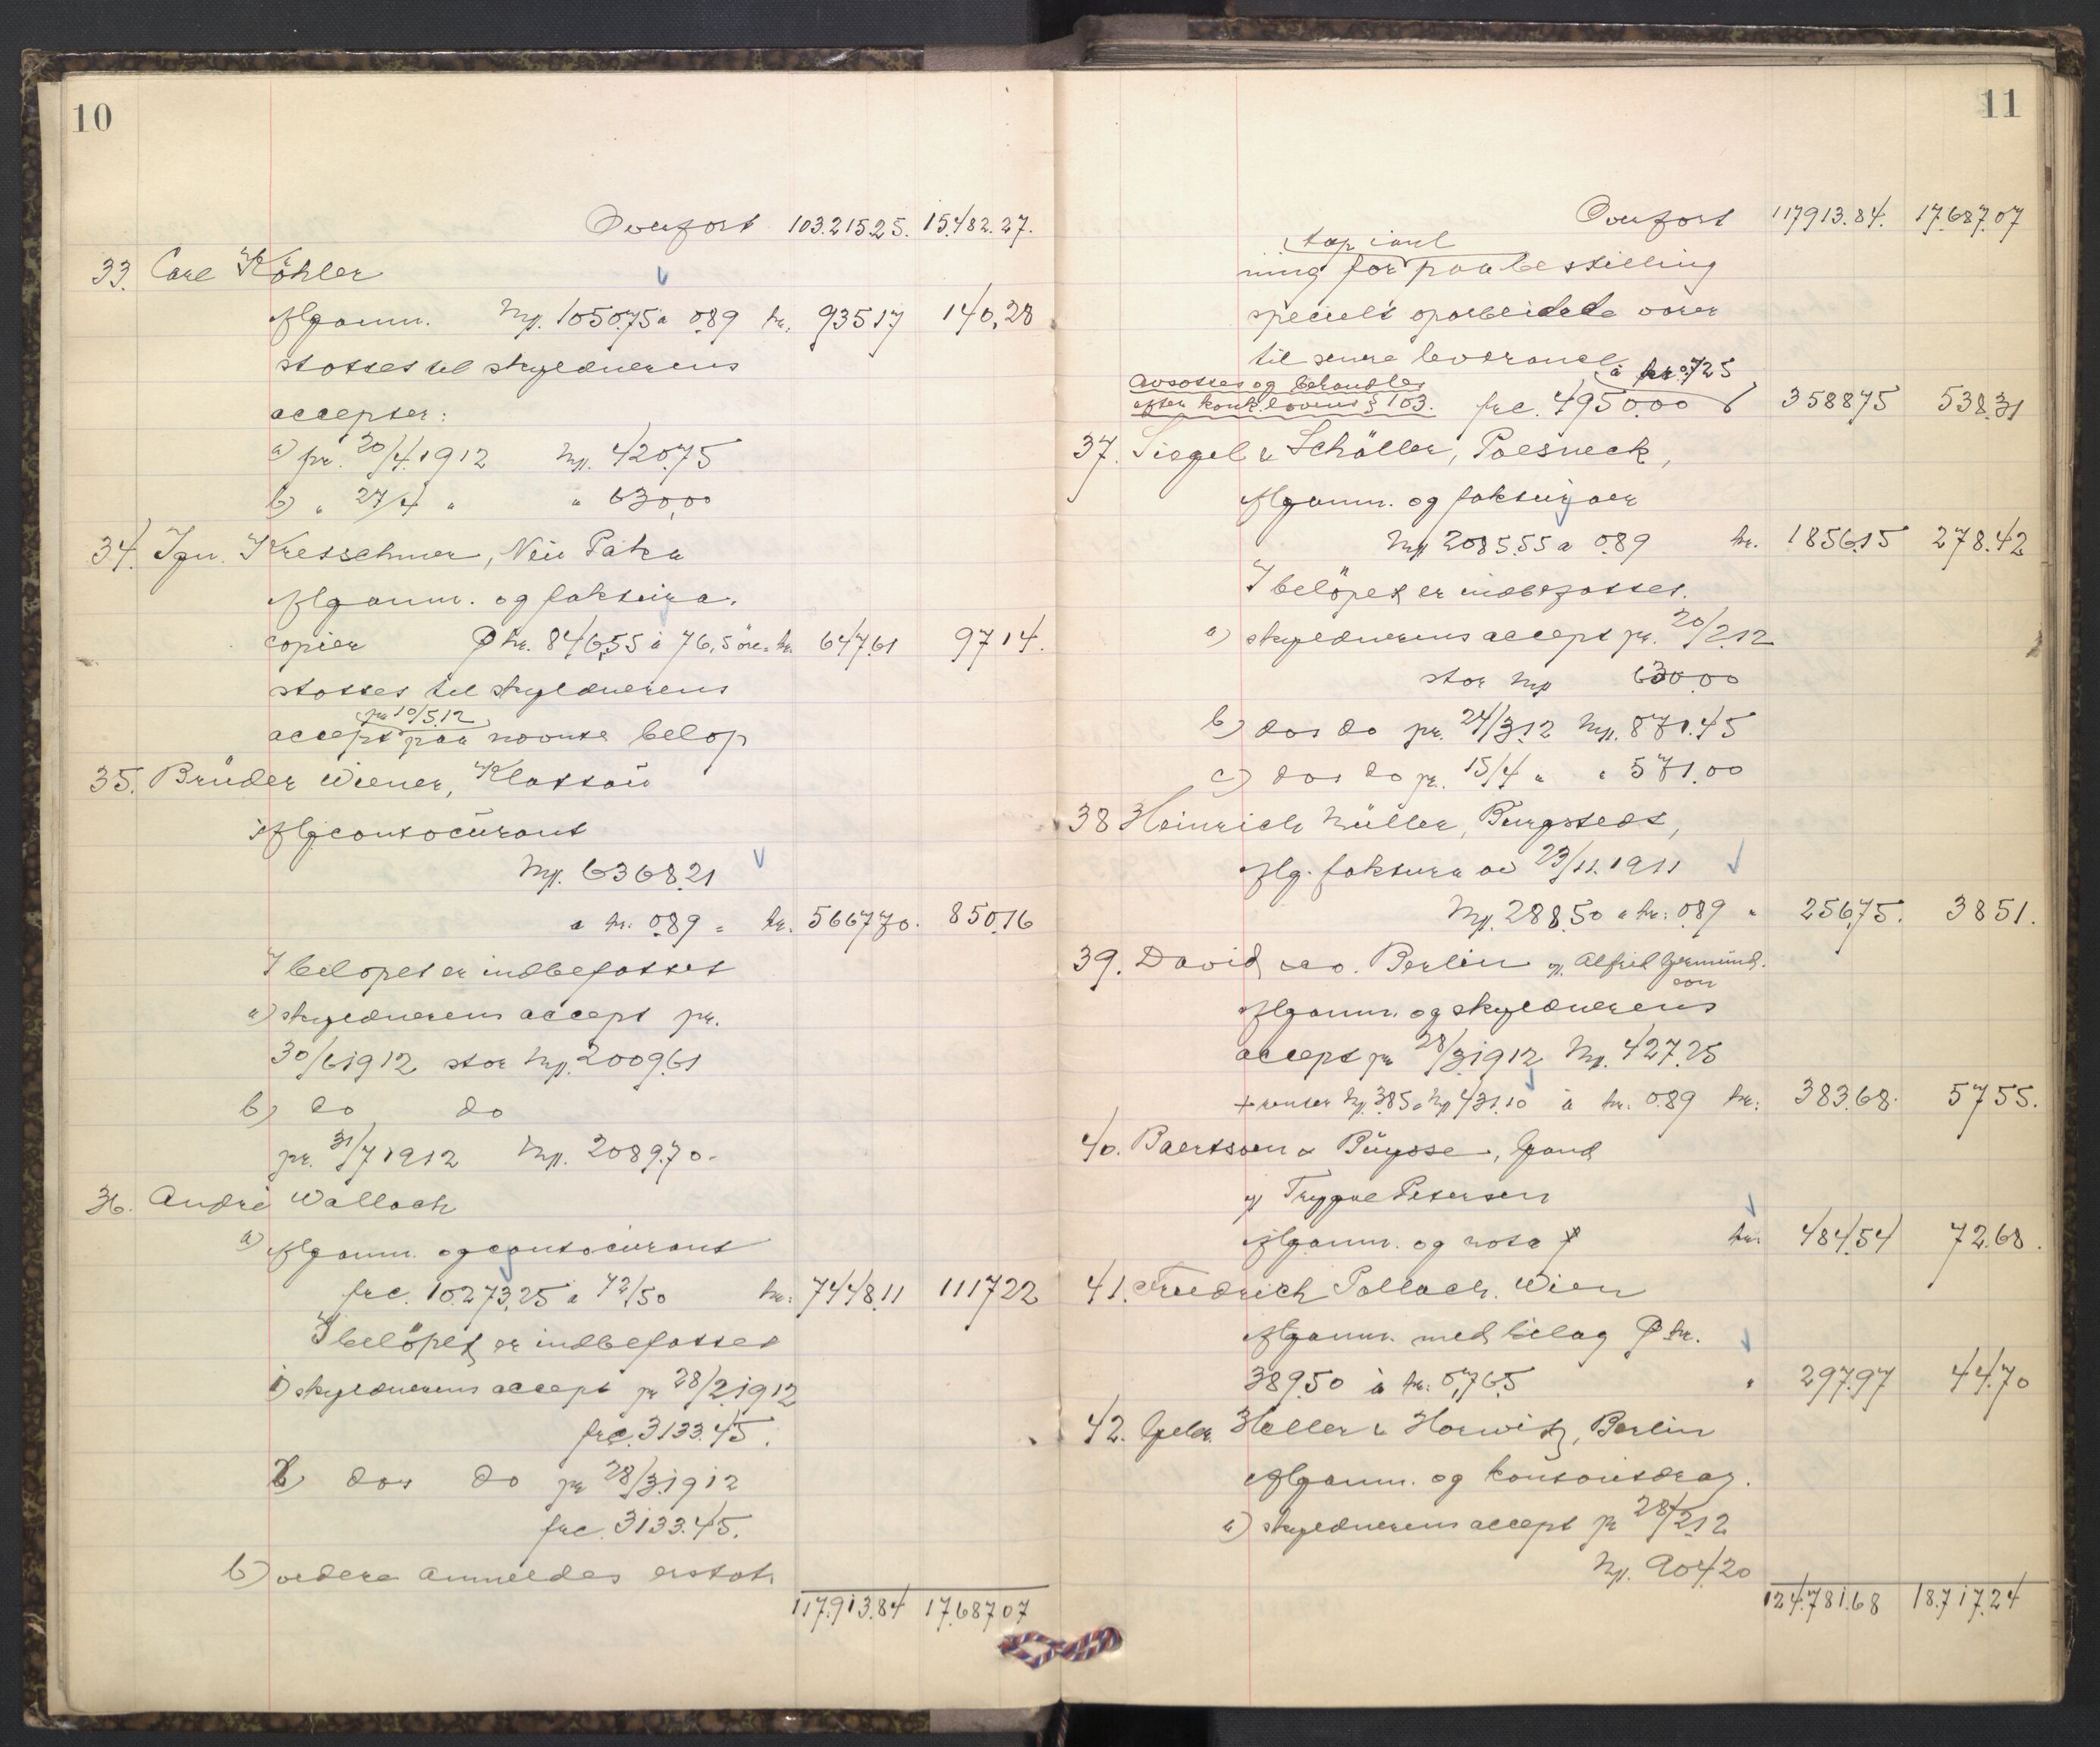 10
Overført 103.215.25. 15.482.27.
33. Carl Köhler
Iflg anm. Mk. 1050.75 a 0.89 kr. 935.17 140,28
støttes til skyldnerens
accepter:
a) pr. 20/4.1912 Mk. 420.75
b) " 27/4 " " 630,00
34. Ign. Kretschmer, Neu Paka
Ifl anm. og faktura.
copier Ø kr. 846,55 à 76,5 øre = kr. 647.61 97 14.
støttes til skyldnerens
pr 10/5.12
accept paa nævnte beløp
35. Brüder Wiener, Klattau
Iflg contocurant
Mk. 6368.21
a kr. 0.89 = kr. 5667.70. 850.16
I beløpet er indbefattet
a) skyldnerens accept pr.
30/6 1912 stor Mk. 2009.61
b) do do
pr. 31/7 1912 Mk. 2089.70.
36. André Wallach
a) Iflg anm. og contocurant
frc. 10.273,25 à 72/50 kr: 7448.11 1117 22
I beløpet er indbefattet
1) skyldnerens accept pr 28/2.1912
frc. 3133.45.
2) dos do pr 28/3.1912
frc. 3133.45.
b) videre anmeldes erstat
117.913.84 17.687 07
11
Overført 117913.84. 17.687.07
tap iaul
ning for paa bestilling
specielt oparbeidede varer
til senere leverance
à kr 0.725
Avsættes og behandles
efter konk.lovens § 103. frc. 4950.00 3588 75 538.31
37. Siegel & Schöller, Poesneck,
Iflg anm. og fakturaer
Mk 2085.55 a 0.89 kr. 1856.15 278.42
I beløpet er indbefattet.
a) skyldnerens accept pr. 20/2.12
stor Mk 630.00
b) dos do pr. 24/3.12 Mk. 871.45
c) dos do pr. 15/4 " " 571.00
38 Heinrich Müller, Burgstedt,
Iflg. faktura av 23/11.1911
Mk. 288.50 a kr: 0.89 " 256.75. 38 51.
39. David Berlin v. Alfred Germund.
son
Iflg anm. og skyldnerens
accept pr 28/3.1912 Mk. 427.25
+ renter Mk. 3.85 = Mk 431.10 à kr. 0.89 kr: 383.68. 57 55.
40. Baertsoen & Buysse, Gand
v/ Trygve Petersen
Iflg anm. og nota kr: 484.54 72.68.
41. Friedrich Pollack. Wien
Iflg anm. med bilag Ø kr.
389.50 à kr: 0,765 " 297.97 44.70
42. Gebr. Heller & Horwitz, Berlin
Iflg anm. og kontoutdrag.
a) skyldnerens accept pr 28/2.12
Mk. 904.20
124.781.68 18.717.24